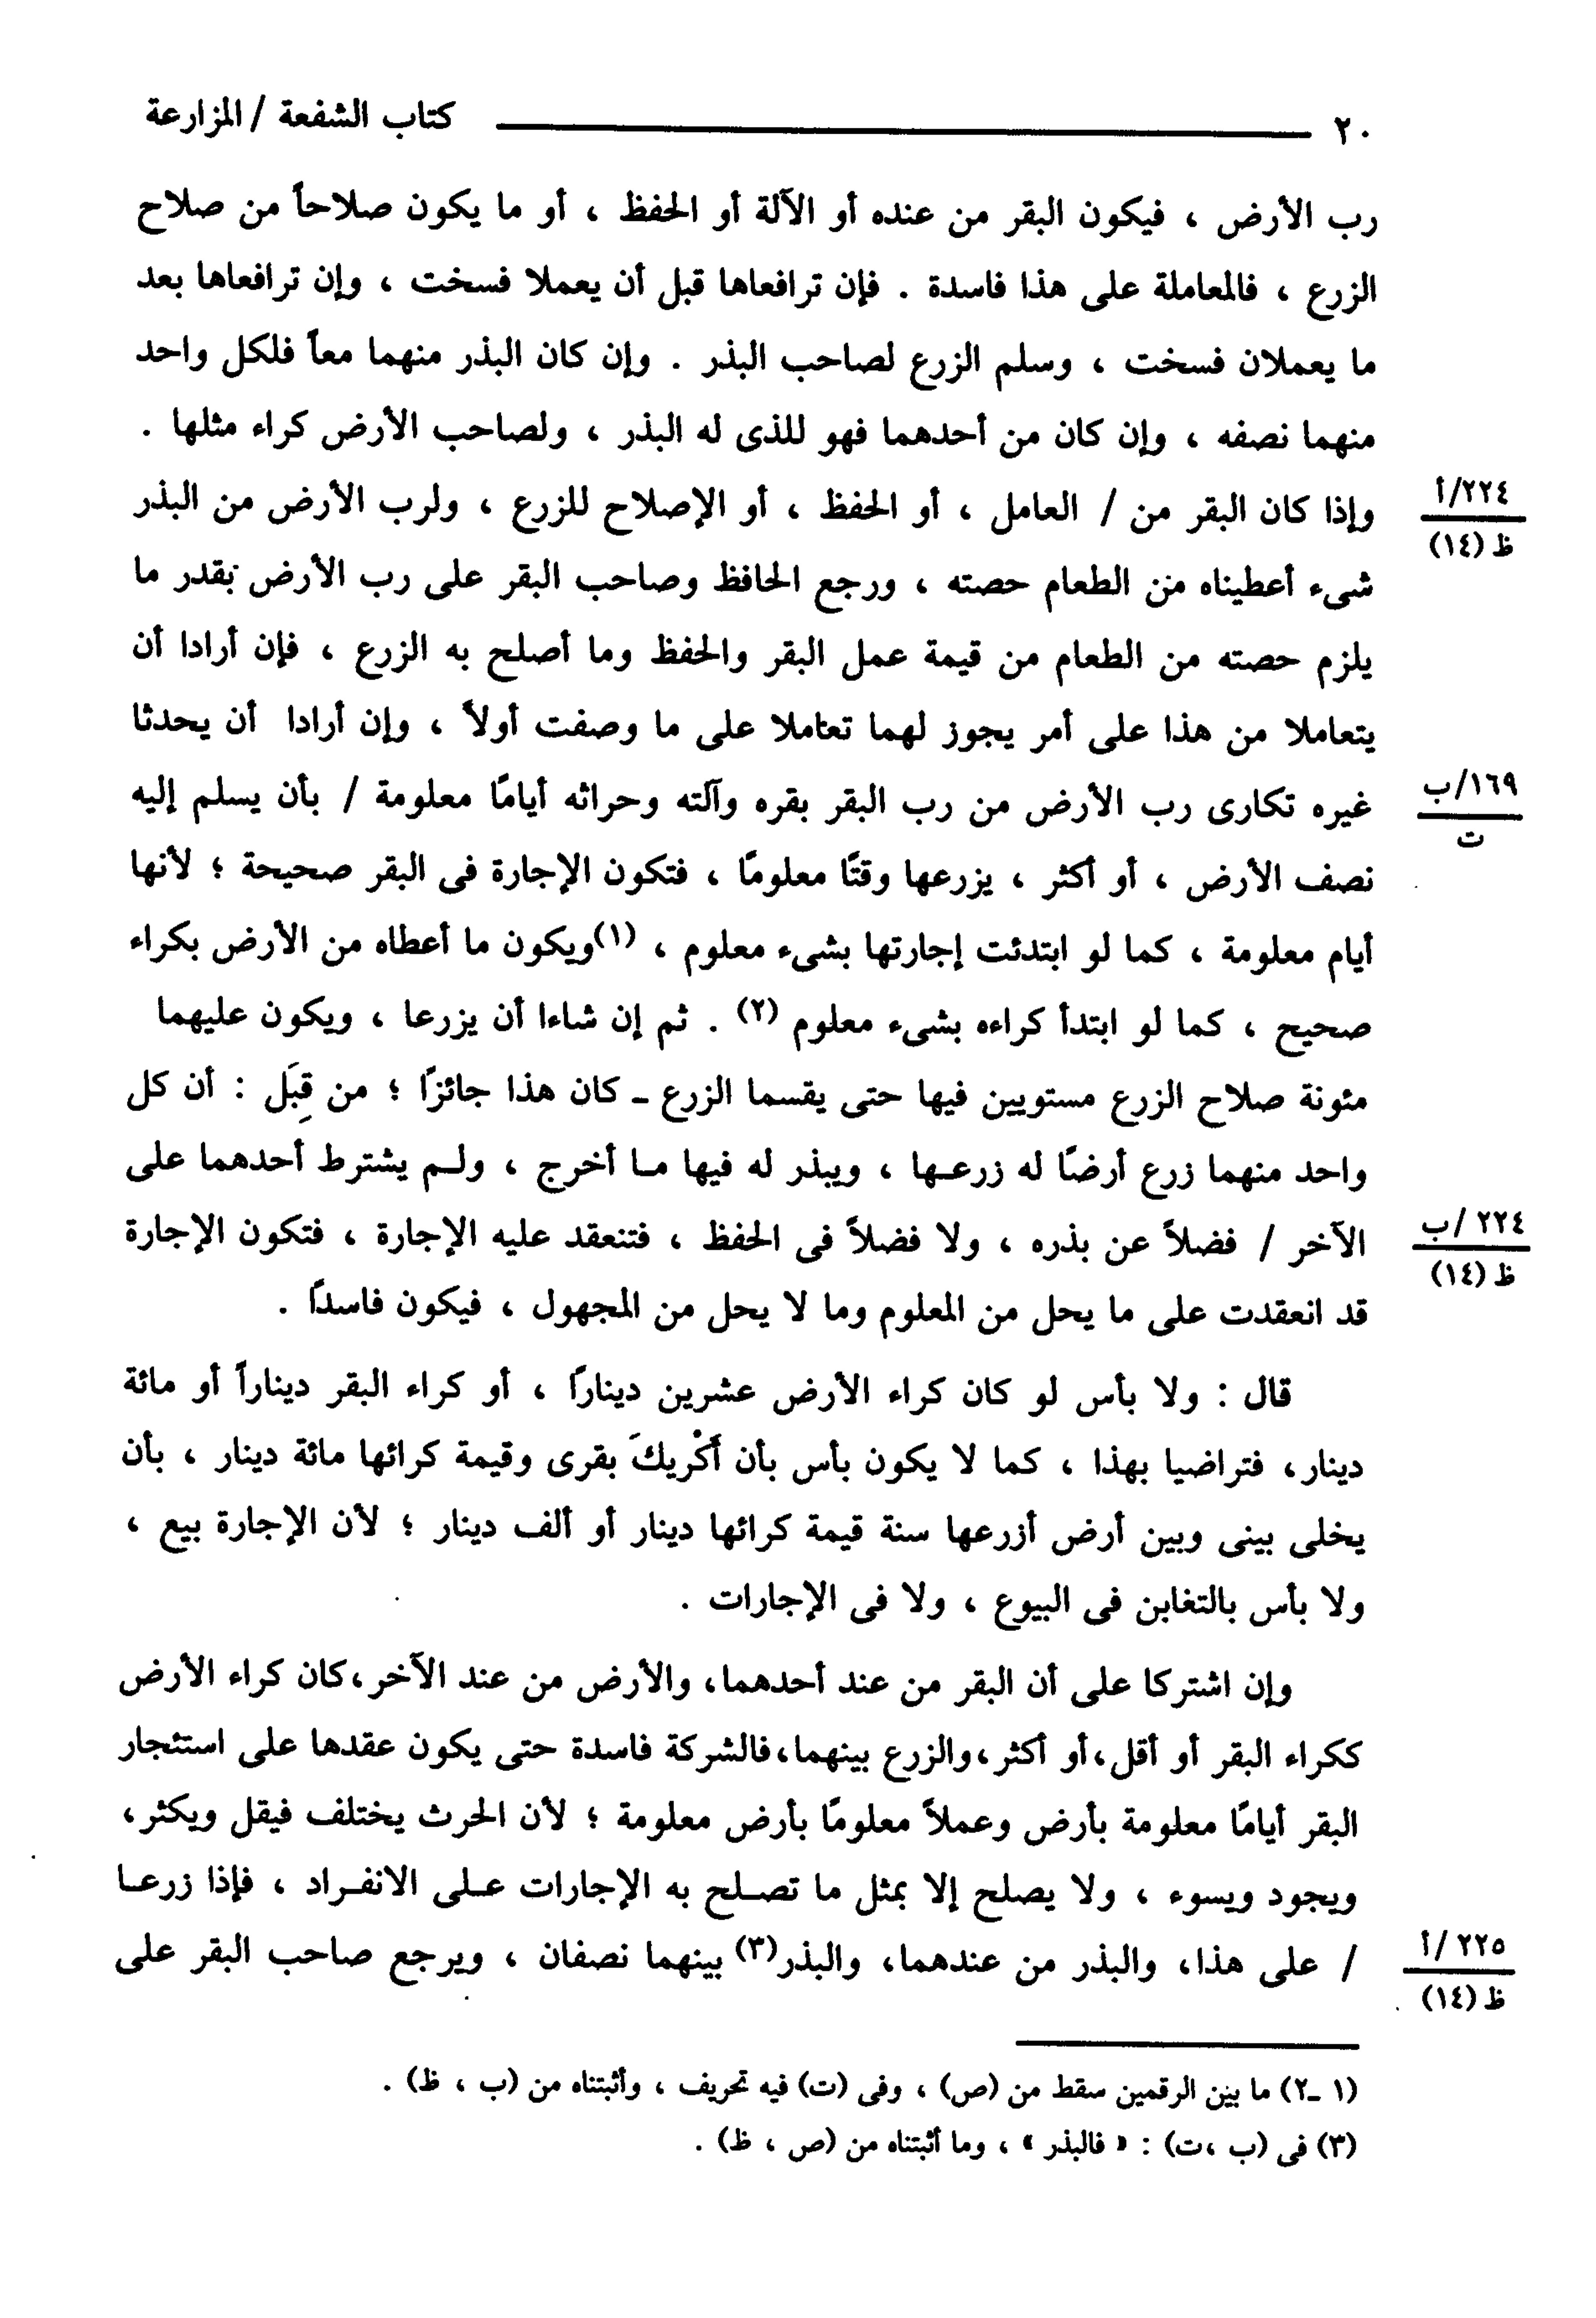 ٢٠ كتاب الشفعة / المزارعة
رب الأرض ، فيكون البقر من عنده أو الآلة أو الحفظ ، أو ما يكون صلاحاً من صلاح
الزرع ، فالمعاملة على هذا فاسدة . فإن ترافعاها قبل أن يعملا فسخت ، وإن ترافعاها بعد
ما يعملان فسخت ، وسلم الزرع لصاحب البذر . وإن كان البذر منهما معاً فلكل واحد
منهما نصفه ، وإن كان من أحدهما فهو للذى له البذر ، ولصاحب الأرض كراء مثلها .
وإذا كان البقر من / العامل ، أو الحفظ ، أو الإصلاح للزرع ، ولرب الأرض من البذر
٢٢٤/أ
ظ (١٤)
شىء أعطيناه من الطعام حصته ، ورجع الحافظ وصاحب البقر على رب الأرض بقدر ما
يلزم حصته من الطعام من قيمة عمل البقر والحفظ وما أصلح به الزرع ، فإن أرادا أن
يتعاملا من هذا على أمر يجوز لهما تعاملا على ما وصفت أولاً ، وإن أرادا أن يحدثا
غيره تكارى رب الأرض من رب البقر بقره وآلته وحراثه أيامًا معلومة / بأن يسلم إليه
١٦٩/ب
ت
نصف الأرض ، أو أكثر ، يزرعها وقتًا معلومًا ، فتكون الإجارة فى البقر صحيحة ؛ لأنها
أيام معلومة ، كما لو ابتدئت إجارتها بشىء معلوم ، (١)ويكون ما أعطاه من الأرض بكراء
صحيح ، كما لو ابتدأ كراءه بشىء معلوم (٢) . ثم إن شاءا أن يزرعا ، ويكون عليهما
مئونة صلاح الزرع مستويين فيها حتى يقسما الزرع ـ كان هذا جائزًا ؛ من قِبَل : أن كل
واحد منهما زرع أرضًا له زرعـها ، ويبذر له فيها مـا أخرج ، ولـم يشترط أحدهما على
الآخر / فضلاً عن بذره ، ولا فضلاً فى الحفظ ، فتنعقد عليه الإجارة ، فتكون الإجارة
٢٢٤ /ب
ظ (١٤)
قد انعقدت على ما يحل من المعلوم وما لا يحل من المجهول ، فيكون فاسدًا .
قال : ولا بأس لو كان كراء الأرض عشرين دينارًا ، أو كراء البقر ديناراً أو مائة
دينار، فتراضيا بهذا ، كما لا يكون بأس بأن أَكْريكَ بقرى وقيمة كرائها مائة دينار ، بأن
يخلى بينى وبين أرض أزرعها سنة قيمة كرائها دينار أو ألف دينار ؛ لأن الإجارة بيع ،
ولا بأس بالتغابن فى البيوع ، ولا فى الإجارات .
وإن اشتركا على أن البقر من عند أحدهما، والأرض من عند الآخر،كان كراء الأرض
ككراء البقر أو أقل،أو أكثر،والزرع بينهما،فالشركة فاسدة حتى يكون عقدها على استئجار
البقر أيامًا معلومة بأرض وعملاً معلومًا بأرض معلومة ؛ لأن الحرث يختلف فيقل ويكثر،
ويجود ويسوء ، ولا يصلح إلا بمثل ما تصـلح به الإجارات عـلى الانفـراد ، فإذا زرعـا
/ على هذا، والبذر من عندهما، والبذر(٣) بينهما نصفان ، ويرجع صاحب البقر على
٢٢٥ /أ
ظ (١٤)
(١ ـ٢) ما بين الرقمين سقط من (ص) ، وفى (ت) فيه تحريف ، وأثبتناه من (ب ، ظ) .
(٣) فى (ب ،ت) : « فالبذر » ، وما أثبتناه من (ص ، ظ) .